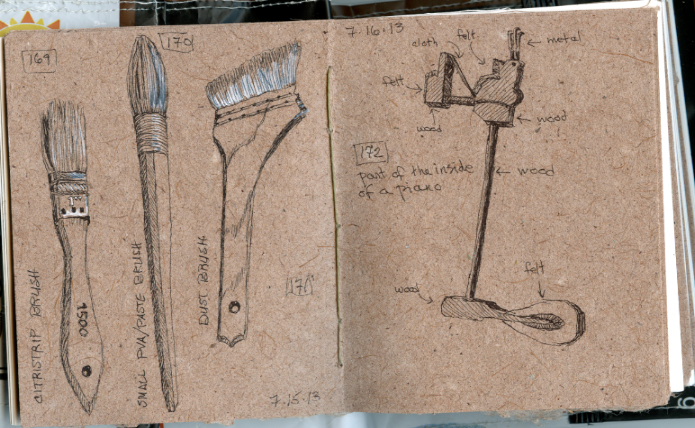 169
170
1"
1500
CITRISTRIP BRUSH
SMALL PVA/PASTE BRUSH
DUST BRUSH
171
7.15.13
7.16.13
cloth
felt
metal
felt
wood
wood
172
part of the inside
of a piano
wood
wood
felt